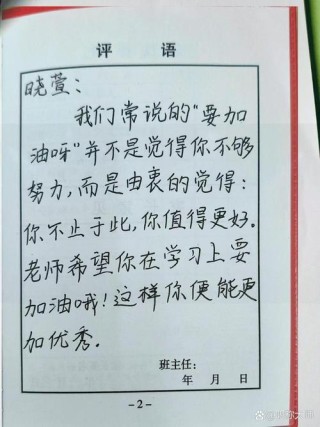 评 语
晓萱：
我们常说的"要加
油呀"并不是觉得你不够
努力,而是由衷的觉得：
你不止于此,你值得更好.
老师希望你在学习上要
加油哦！这样你便能更
加优秀.
班主任：
年 月 日
-2-